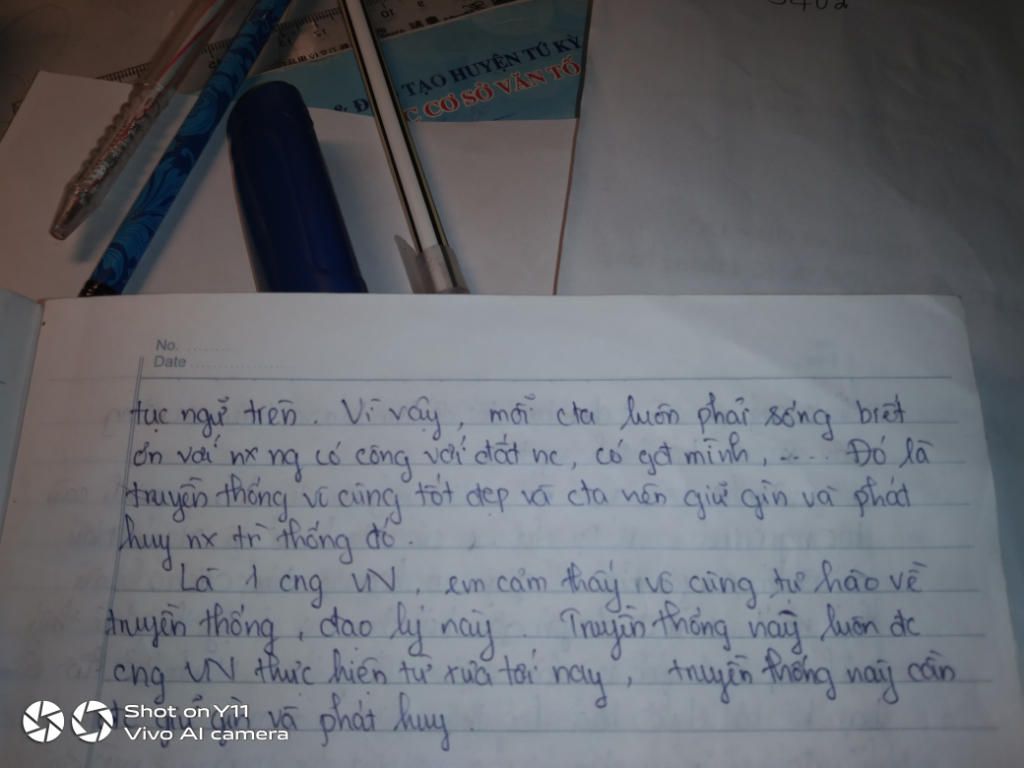 TẠO HUYỆN TỨ KỲ
CƠ SỞ VĂN TỐ
No.
Date
tục ngữ trên. Vì vậy, mỗi cta luôn phải sống biết
ơn với nx ng có công với đất nc, có gđ mình, .... Đó là
truyền thống vô cùng tốt đẹp và cta nên giữ gìn và phát
huy nx tr thống đó.
Là 1 cng VN, em cảm thấy vô cùng tự hào về
truyền thống, đạo lý này. Truyền thống này luôn đc
cng VN thực hiện từ xưa tới nay, truyền thống này cần
giữ gìn và phát huy.
Shot on Y11
Vivo AI camera